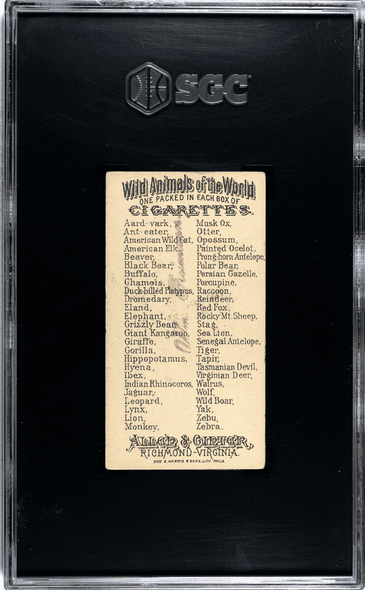 SGC
Wild Animals of the World
ONE PACKED IN EACH BOX OF
CIGARETTES.
Aard-vark,
Ant-eater,
American Wild Cat,
American Elk,
Beaver,
Black Bear,
Buffalo,
Chamois,
Duck-billed Platypus,
Dromedary,
Eland,
Elephant,
Grizzly Bear,
Giant Kangaroo,
Giraffe,
Gorilla,
Hippopotamus,
Hyena,
Ibex,
Indian Rhinoceros,
Jaguar,
Leopard,
Lynx,
Lion,
Monkey,
Musk Ox,
Otter,
Opossum,
Painted Ocelot,
Prong-horn Antelope,
Polar Bear,
Persian Gazelle,
Porcupine,
Raccoon,
Reindeer,
Red Fox,
Rocky Mt. Sheep,
Stag,
Sea Lion,
Senegal Antelope,
Tiger,
Tapir,
Tasmanian Devil,
Virginian Deer,
Walrus,
Wolf,
Wild Boar,
Yak,
Zebu,
Zebra.
ALLEN & GINTER,
RICHMOND-VIRGINIA.
GEO. S. HARRIS & SONS, LITH. PHILA.